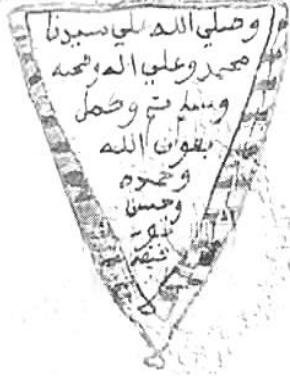 وصلي الله علي سيدنا
محمد وعلي اله وصحبه
وسلم تم وكمل
بعون الله
وحمده
وحسن